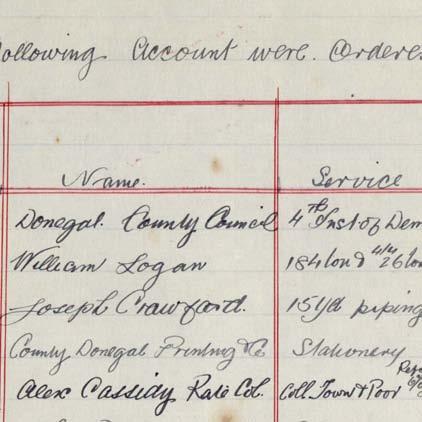 ollowing Account were Ordere
Name. Service
Donegal. County Council 4th Inst of Dem
William Logan 184 lond 4/4 26 lon
Joseph Crawford. 15 yds piping
County Donegal Printing Co Stationery
Alex Cassidy Rate Col. Coll. Town & Poor